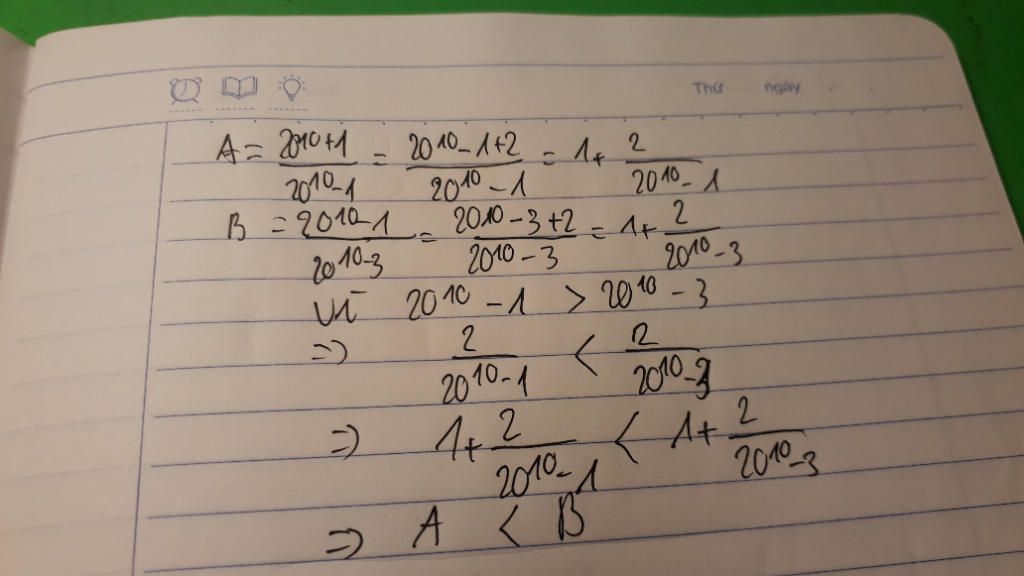 Thứ ngày
A = \frac{20^{10}+1}{20^{10}-1} = \frac{20^{10}-1+2}{20^{10}-1} = 1+ \frac{2}{20^{10}-1}
B = \frac{20^{10}-1}{20^{10}-3} = \frac{20^{10}-3+2}{20^{10}-3} = 1+ \frac{2}{20^{10}-3}
Vì 20^{10}-1 > 20^{10}-3
=> \frac{2}{20^{10}-1} < \frac{2}{20^{10}-3}
=> 1+ \frac{2}{20^{10}-1} < 1+ \frac{2}{20^{10}-3}
=> A < B